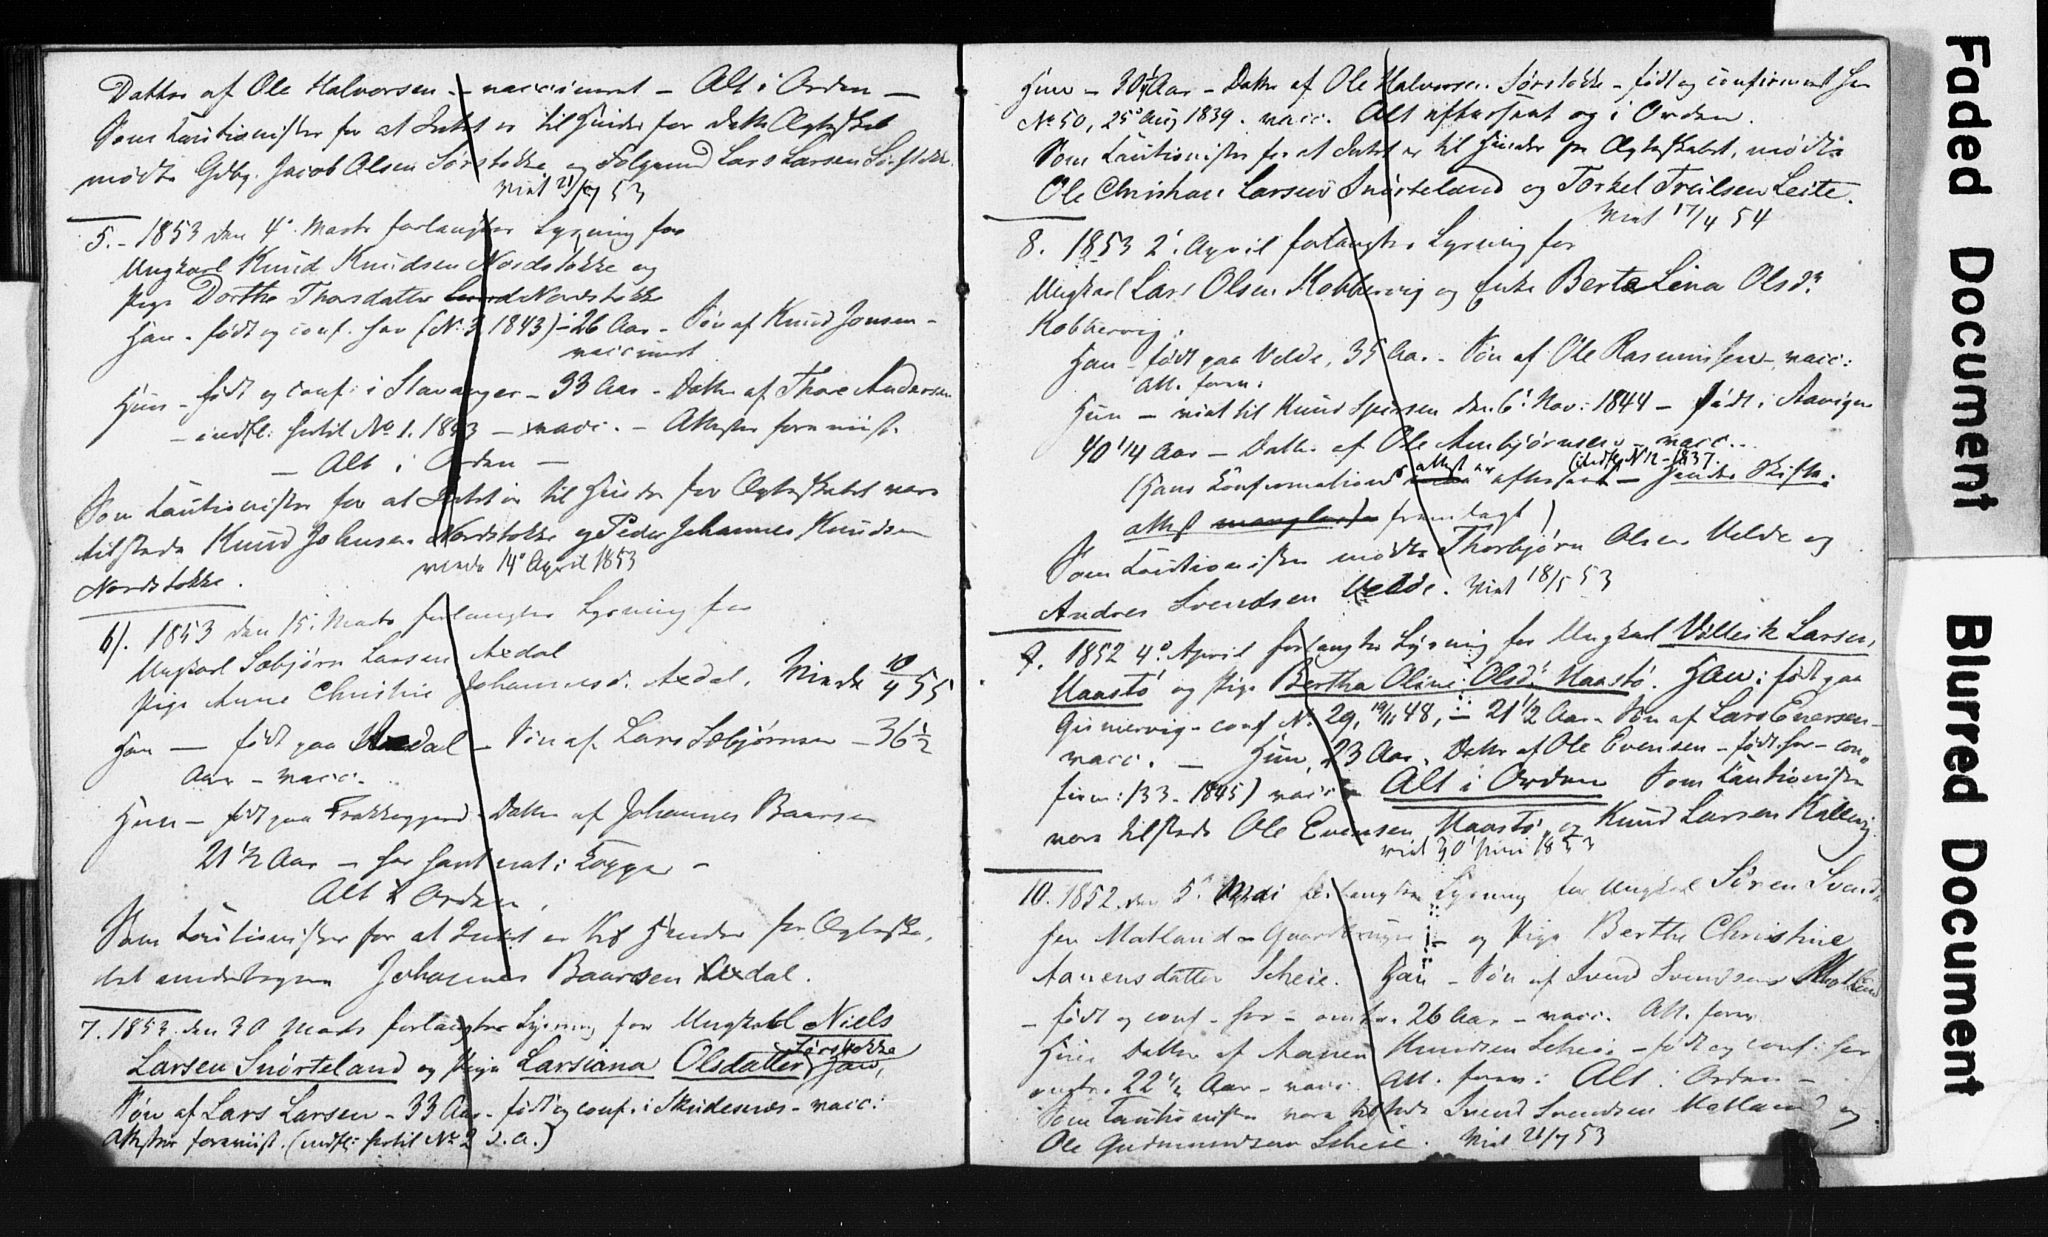 Datter af Ole Halvorsen - vaccineret - Alt i Orden -
Som Cautionister for at Intet er til Hinder for dette Ægteskab
mødte Gdbr. Jacob Olsen Sørstokke og Følgemand Lars Larsen
viet 21/7 53
5. - 1853 den 4de Marts forlangtes Lysning for
Ungkarl Knud Knudsen Nordstokke og
Pige Dorthe Thorsdatter Nordstokke
Han - født og conf. her (No. 3, 1843) - 26 Aar - Søn af Knud Jonsen -
vaccineret
Hun - født og conf. i Stavanger - 33 Aar - Datter af Thore Andersen
- indfl: hertil No 1. 1853 - vacc. - Attester foreviist
- Alt i Orden -
Som Cautionister for at Intet er til Hinder for Ægteskabet vare
tilstede Knud Johnsen Nordstokke og Peder Johannes Knudsen
Nordstokke.
viede 14de April 1853
6). 1853 den 15. Marts forlangtes Lysning for
Ungkarl Sæbjørn Larsen Axdal
Pige Anne Christine Johannesd. Axdal. Viede 10/4 55
Han - født paa Axdal - Søn af Lars Sæbjørnsen - 36 1/2
Aar - vacc.
Hun - født paa - Datter af Johannes Baarsen
21 1/2 Aar - har havt nat: Kopper -
Alt i Orden.
Som Cautionister for at Intet er til Hinder for Ægteska-
bet undertegnes Johannes Baarsen Axdal.
7. 1853 den 30 Marts forlangtes Lysning for Ungkarl Niels
Larsen Snørteland og Pige Larsiana Olsdatter Sørstokke Han,
Søn af Lars Larsen - 33 Aar - født og conf. i Skudesnæs - vacc:
Attester foreviist. (indfl: hertil No 2 d. A.)
Hun - 30 1/4 Aar - Datter af Ole Halvorsen Sørstokke - født og confirmeret her
No 50, 25de Aug 1839. vacc. Alt efterseet og i Orden.
Som Cautionister for at Intet er til Hinder for Ægteskabet, mødte
Ole Christian Larsen Snørteland og Torkel Truelsen Leite.
Viet 17/4 54
8. 1853 2: April forlangtes Lysning for
Ungkarl Lars Olsen Kobbervig og Enke Berte Lina Olsdr
Kobbervig.
Han - født paa Velde, 35 Aar - Søn af Ole Rasmussen - vacc:
Att. forev.
Hun - viet til Knud Iversen den 6: Nov: 1844 - født i
40 1/4 Aar - Datter af Ole - vacc..
(indfl. N 12 - 1837.
(Hans Confirmations attest er efterseet - Hendes Skifte:
attest fremlagt)
Som Cautionister mødte Thorbjørn Olsen Velde og
Andres Svendsen Velde. Viet 18/5 53
9. 1852 4de April forlangtes Lysning for Ungkarl Villeik Larsen,
Naastø og Pige Bertha Oline Olsdr Naastø. Han: født paa
Gunnervig - conf No. 29, 19/11 48, - 21 1/2 Aar - Søn af Lars Enersen -
vacc. - Hun, 23 Aar. Datter af Ole Evensen - født her - con„
firm: (33 - 1845) vacc - Alt i Orden Som Cautionister
vare tilstede Ole Evensen Naastø, og Knud Larsen Kallevig
viet 30 Juni 1853
10. 1852. den 5te Mai forlangtes Lysning for Ungkarl Søren Svend-
sen Matland - Gaardbruger - og Pige Berthe Christine
Aanensdatter Scheie. Han - Søn af Svend Svendsen Matland
- født og conf - her - omtr. 26 Aar - vacc. Att. forev.
Hun Datter af Aanen Knudsen Scheie - født og conf: her
omtr. 22 1/2 Aar - vacc. Att. forev: Alt i Orden -
Som Cautionister vare tilstede Svend Svendsen Matland og
Ole Gudmundsen Scheie. Viet 21/7 53
Faded Document
Blurred Document